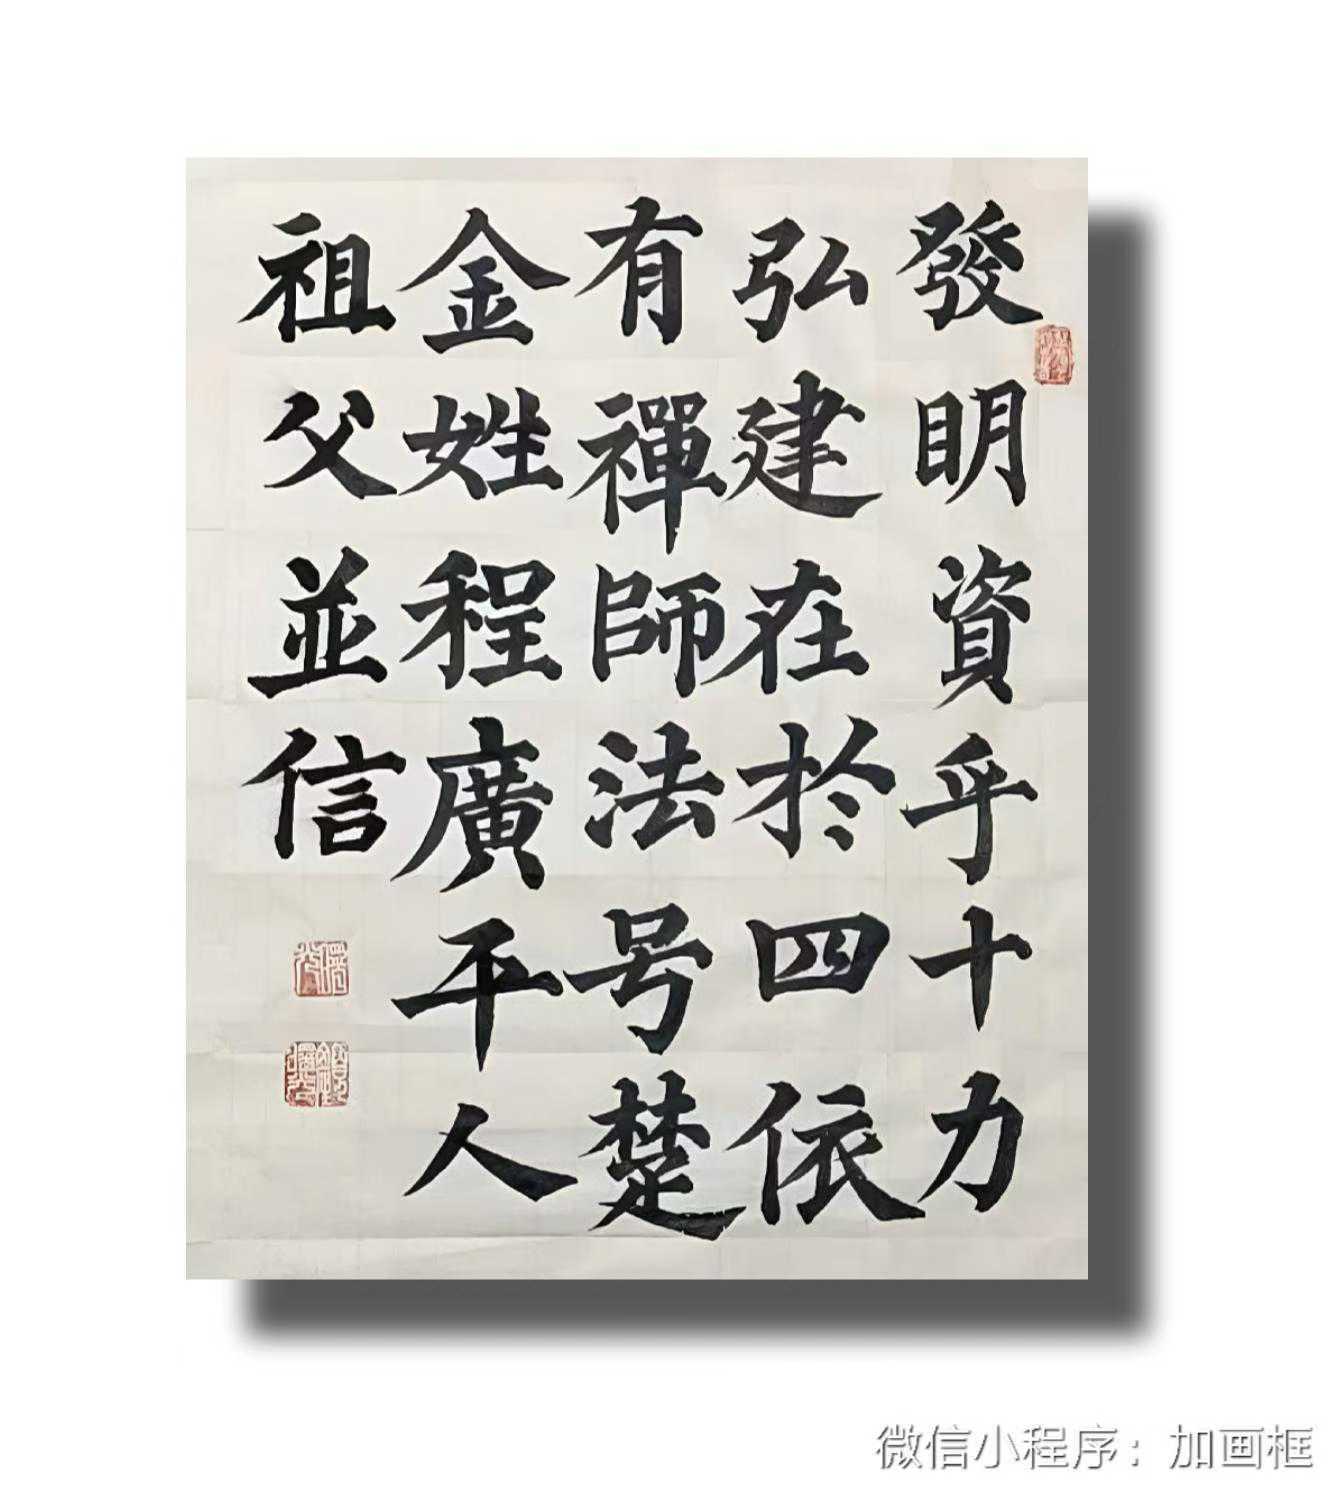 發明資乎十力
弘建在於四依
有禪師法号楚
金姓程廣平人
祖父並信
微信小程序：加画框